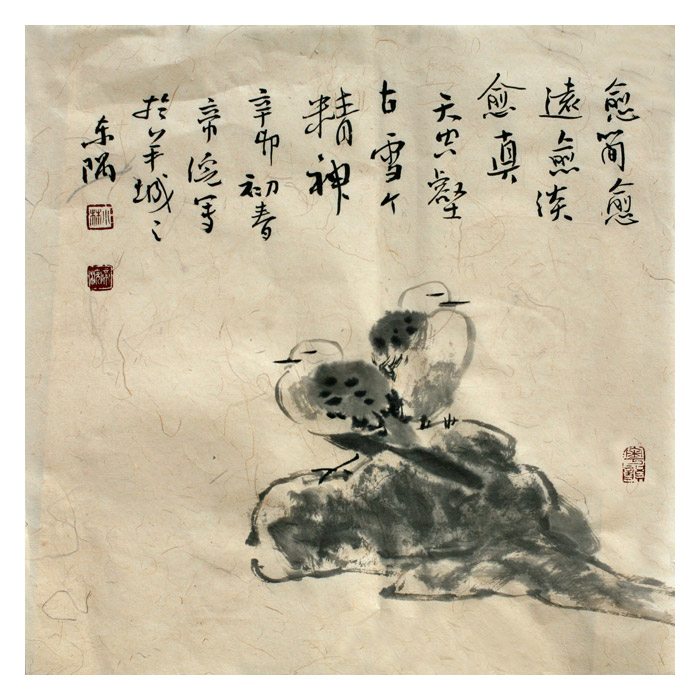 愈簡愈
遠愈淡
愈真
天空壑
古雪个
精神
辛卯初春
帝写
於羊城之
东隅